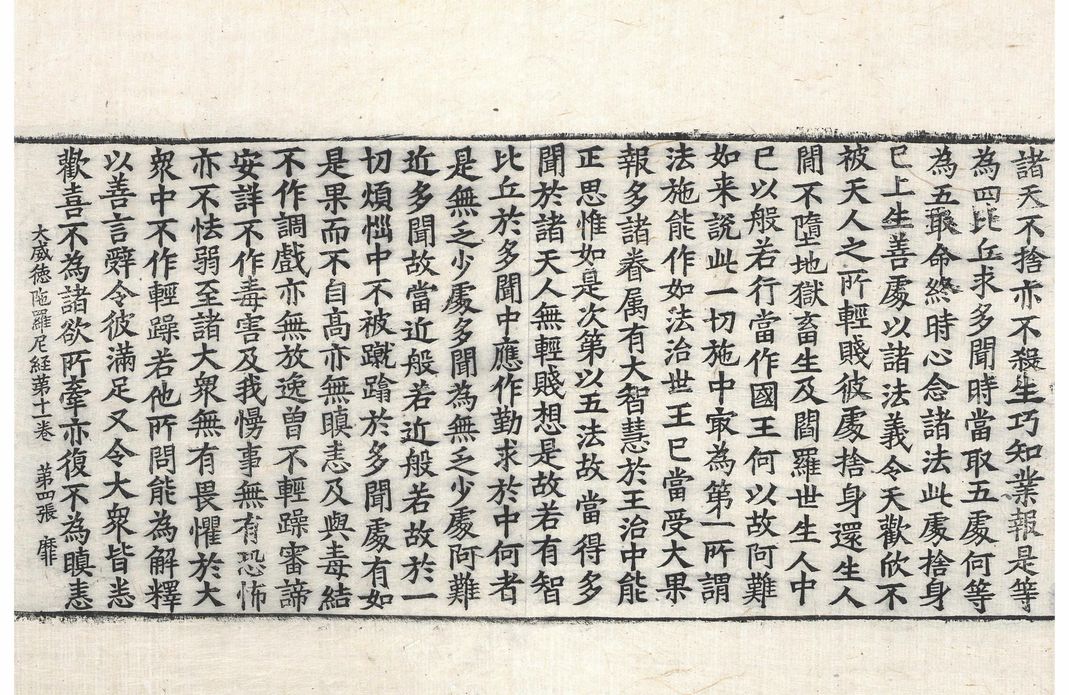 諸天不捨亦不殺生巧知業報是等
為四比丘求多聞時當取五處何等
為五㝡命終時心念諸法此處捨身
已上生善處以諸法義令天歡欣不
被天人之所輕賤彼處捨身還生人
閒不墮地獄畜生及閻羅世生人中
已以般若行當作國王何以故阿難
如来說此一切施中㝡為第一所謂
法施能作如法治世王已當受大果
報多諸眷属有大智慧於王治中能
正思惟如是次第以五法故當得多
聞於諸天人無輕賤想是故若有智
比丘於多聞中應作勤求於中何者
是無乏少處多聞為無乏少處阿難
近多聞故當近般若近般若故於一
切煩惱中不被蹴蹹於多聞處有如
是果而不自高亦無瞋恚及與毒結
不作調戲亦無放逸曾不輕躁審諦
安詳不作毒害及我慢事無有恐怖
亦不怯弱至諸大衆無有畏懼於大
衆中不作輕躁若他所問能為解釋
以善言辭令彼滿足又令大衆皆悉
歡喜不為諸欲所牽亦復不為瞋恚
大威徳陁羅尼経第十卷 第四張 靡